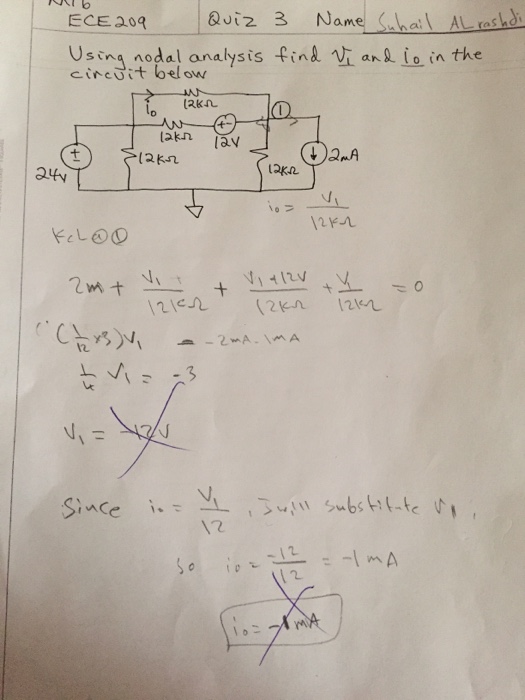 ECE209 Quiz 3 Name Suhail AL rashdi
Using nodal analysis find V₁ and io in the
circuit below
io 12KΩ
①
12KΩ
+-
12V
24V
±
12KΩ
12KΩ
2mA
io = V₁/12KΩ
KCL@①
2m + V₁/12KΩ + V₁+12V/12KΩ + V₁/12KΩ = 0
(1/12 ×3)V₁ = -2mA-1mA
1/4 V₁ = -3
V₁ = -12V
Since io = V₁/12 , I will substitute V₁,
so io = -12/12 = -1mA
io = -1mA